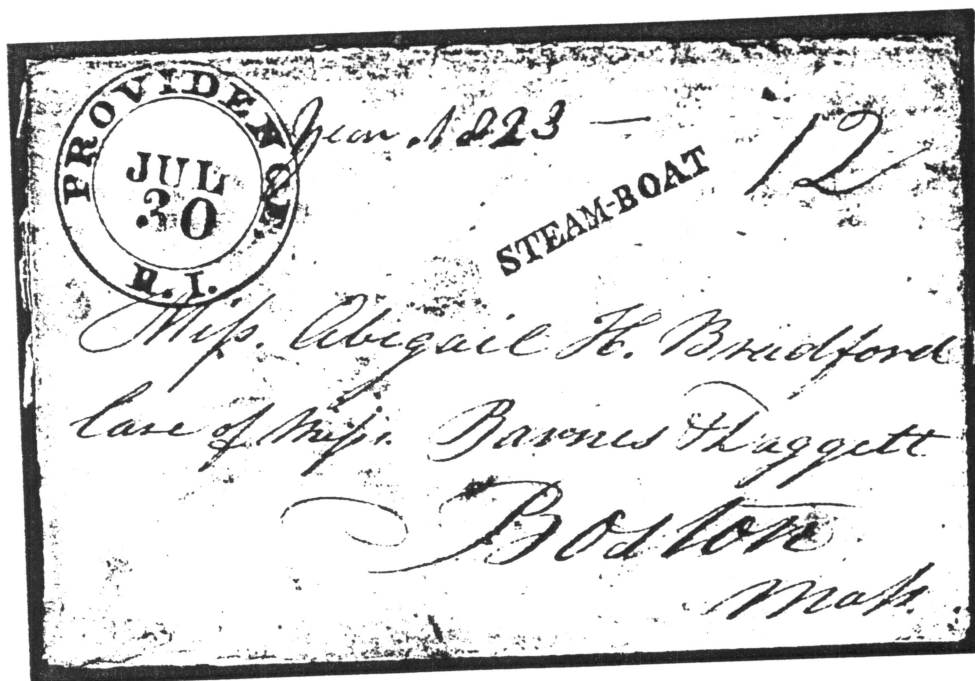 PROVIDENCE
JUL
30
R.I.
Year 1823 —
STEAM-BOAT
12
Miss. Abigail H. Bradford
Care of Messr. Barnes & Daggett
Boston
Mass.